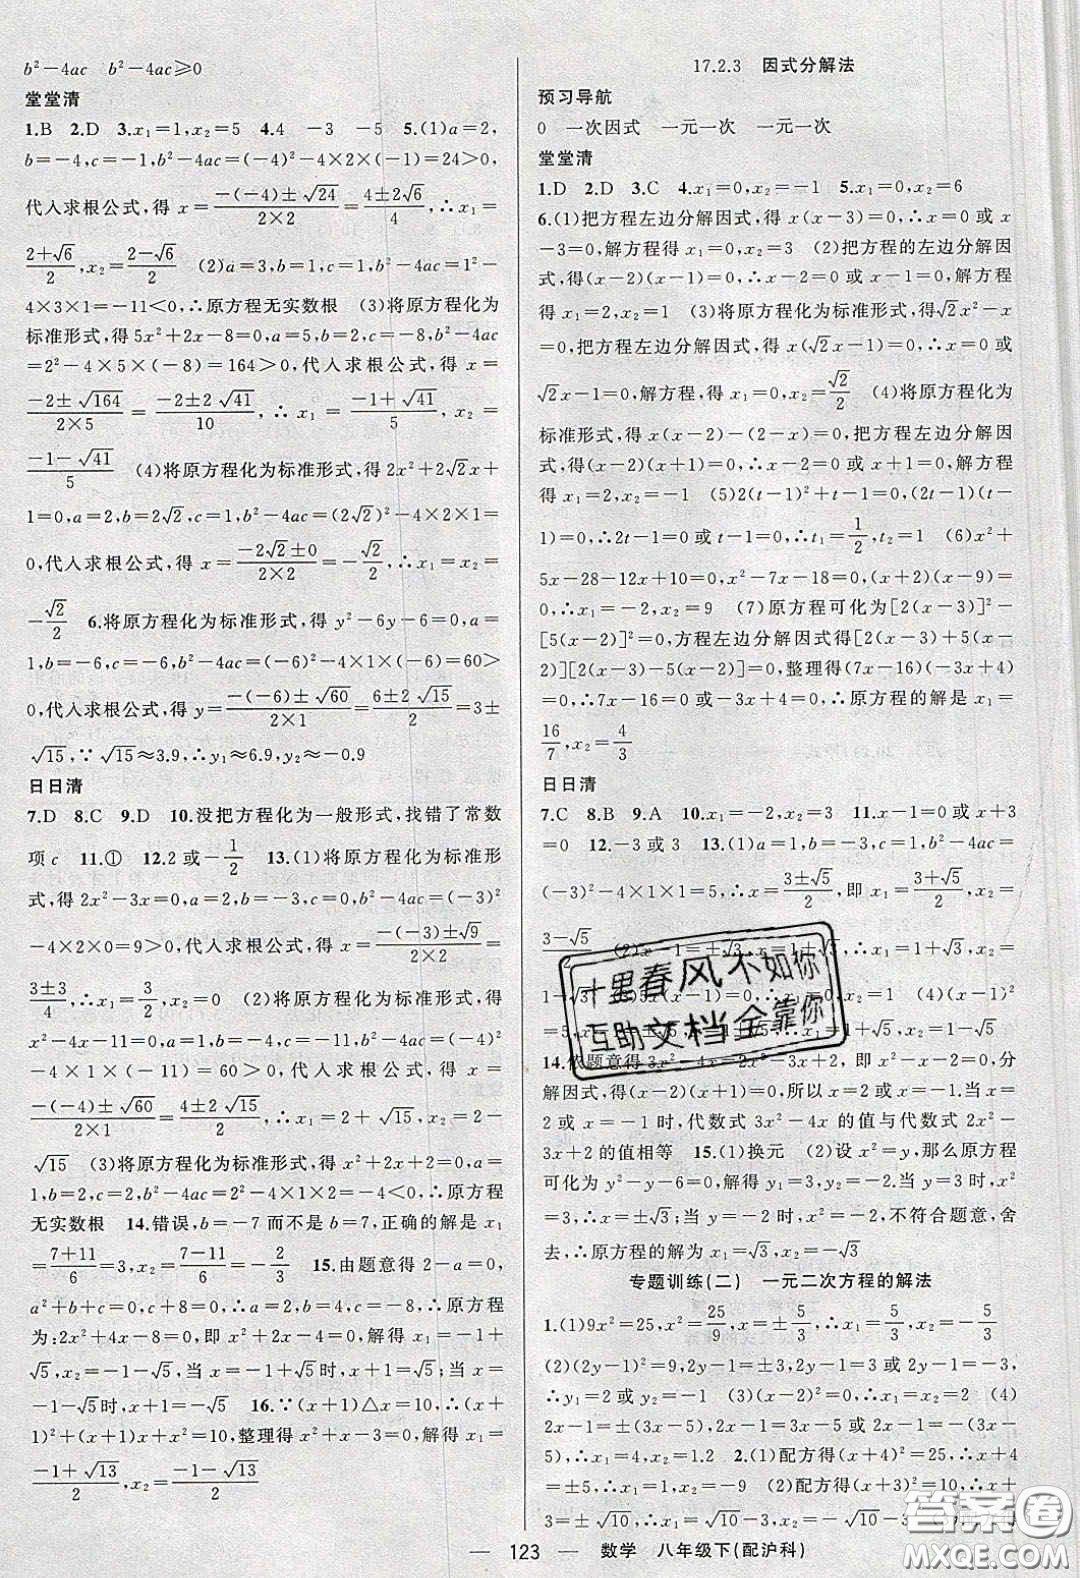 b²-4ac　b²-4ac≥0
堂堂清
1.B　2.D　3.x₁=1,x₂=5　4.4　-3　-5　5.(1)a=2,
b=-4,c=-1,b²-4ac=(-4)²-4×2×(-1)=24>0,
代入求根公式,得 x=(-(-4)±√24)/(2×2)=(4±2√6)/4,∴x₁=
(2+√6)/2,x₂=(2-√6)/2　(2)a=3,b=1,c=1,b²-4ac=1²-
4×3×1=-11<0,∴原方程无实数根　(3)将原方程化为
标准形式,得5x²+2x-8=0,a=5,b=2,c=-8,b²-4ac
=2²-4×5×(-8)=164>0,代入求根公式,得 x=
(-2±√164)/(2×5)=(-2±2√41)/10,∴x₁=(-1+√41)/5,x₂=
(-1-√41)/5　(4)将原方程化为标准形式,得2x²+2√2x+
1=0,a=2,b=2√2,c=1,b²-4ac=(2√2)²-4×2×1=
0,代入求根公式,得 x=(-2√2±0)/(2×2)=-√2/2,∴x₁=x₂=
-√2/2　6.将原方程化为标准形式,得 y²-6y-6=0,a=
1,b=-6,c=-6,b²-4ac=(-6)²-4×1×(-6)=60>
0,代入求根公式,得 y=(-(-6)±√60)/(2×1)=(6±2√15)/2=3±
√15,∵√15≈3.9,∴y₁≈6.9,y₂≈-0.9
日日清
7.D　8.C　9.D　10.没把方程化为一般形式,找错了常数
项c　11.①　12.2或-1/2　13.(1)将原方程化为标准形
式,得2x²-3x=0,a=2,b=-3,c=0,b²-4ac=(-3)²
-4×2×0=9>0,代入求根公式,得 x=(-(-3)±√9)/(2×2)=
(3±3)/4,∴x₁=3/2,x₂=0　(2)将原方程化为标准形式,得
x²-4x-11=0,a=1,b=-4,c=-11,b²-4ac=(-4)²
-4×1×(-11)=60>0,代入求根公式,得 x=
(-(-4)±√60)/(2×1)=(4±2√15)/2=2±√15,∴x₁=2+√15,x₂=2-
√15　(3)将原方程化为标准形式,得x²+2x+2=0,a=
1,b=2,c=2,b²-4ac=2²-4×1×2=-4<0,∴原方程
无实数根　14.错误,b=-7而不是b=7,正确的解是x₁
=(7+11)/6=3,x₂=(7-11)/6=-2/3　15.由题意得2-a=0,
a²+b+c=0,c+8=0,∴a=2,b=4,c=-8,∴原方程
为:2x²+4x-8=0,即x²+2x-4=0,解得x₁=-1+
√5,x₂=-1-√5,当x=-1+√5时,x²+x=5-√5;当x=
-1-√5时,x²+x=5+√5　16.∵(x+1)△x=10,∴(x+
1)²+(x+1)x+x²=10,整理得x²+x-3=0,解得x₁=
(-1+√13)/2,x₂=(-1-√13)/2
17.2.3　因式分解法
预习导航
0　一次因式　一元一次　一元一次
堂堂清
1.D　2.D　3.C　4.x₁=0,x₂=-1　5.x₁=0,x₂=6
6.(1)把方程左边分解因式,得x(x-3)=0,∴x=0或x
-3=0,解方程得x₁=0,x₂=3　(2)把方程的左边分解因
式,得(x-2)(x-1)=0,∴x-2=0或x-1=0,解方程
得x₁=2,x₂=1　(3)将原方程化为标准形式,得√2x²-x
=0,把方程左边分解因式,得x(√2x-1)=0,∴x=0或
√2x-1=0,解方程,得x₁=0,x₂=√2/2　(4)将原方程化为
标准形式,得x(x-2)-(2-x)=0,把方程左边分解因
式,得(x-2)(x+1)=0,∴x-2=0或x+1=0,解方程
得x₁=2,x₂=-1　(5)2(t-1)²+t-1=0,(2t-1)(t-
1)=0,∴2t-1=0或t-1=0,∴t₁=1/2,t₂=1　(6)x²+
5x-28-12x+10=0,x²-7x-18=0,(x+2)(x-9)=
0,∴x₁=-2,x₂=9　(7)原方程可化为[2(x-3)]²-
[5(x-2)]²=0,方程左边分解因式得[2(x-3)+5(x-
2)][2(x-3)-5(x-2)]=0,整理得(7x-16)(-3x+4)
=0,∴7x-16=0或-3x+4=0,∴原方程的解是x₁=
16/7,x₂=4/3
日日清
7.C　8.B　9.A　10.x₁=-2,x₂=3　11.x-1=0或x+3
=0　12.-3或3　13.(1)a=1,b=-3,c=1,b²-4ac=
(-3)²-4×1×1=5,∴x=(3±√5)/2,即x₁=(3+√5)/2,x₂=
(3-√5)/2　(2)x-1=±√3,x=1±√3,∴x₁=1+√3,x₂=
1-√3
14.依题意得3x²-4x=2x²-3x+2,即x²-x-2=0,分
解因式,得(x-2)(x+1)=0,所以x=2或x=-1.当x=
2或x=-1时,代数式3x²-4x的值与代数式2x²-
3x+2的值相等　15.(1)换元　(2)设x²=y,那么原方程
可化为y²-y-6=0,解得y₁=3,y₂=-2,当y=3时,x²
=3,∴x=±√3;当y=-2时,x²=-2,不符合题意,舍
去,∴原方程的解为x₁=√3,x₂=-√3
专题训练(二)　一元二次方程的解法
1.(1)9x²=25,x²=25/9,x=±5/3,∴x₁=5/3,x₂=-5/3
(2)(2y-1)²=9,2y-1=±3,2y-1=3或2y-1=-3,
∴y₁=2或y₂=-1
2x-1=±(3-x),2x-1=3-x或2x-1=-(3-
5),∴x₁=4,x₂=1.2　2.(1)配方得(x+4)²=25,∴x+4=
±5,∴x₁=1,x₂=-9　(2)配方得(x+3)²=10,∴x+
3=±√10,∴x₁=-3+√10,x₂=
十里春风不如你
互助文档全靠你
答案圈
MXQE.COM
— 123 —　数学　八年级下(配沪科)